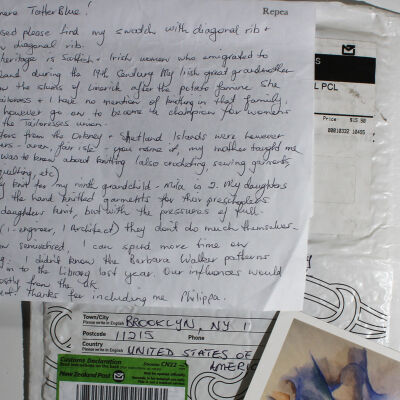 TatterBlue!
Repea
please find my swatch with diagonal rib +
diagonal rib.
heritage is Scottish + Irish women who emigrated to
during the 19th Century. My Irish great grandmother
the slums of Limerick after the potato famine. She
+ I have no mention of knitting in that family.
however go on to become a champion for women's
the Tailoresses union.
from the Orkney + Shetland Islands were however
- aran, fair isle - you name it, my mother taught me
was to know about knitting (also crocheting, sewing garments,
quilting, etc)
knit for my ninth grandchild - Mila is 2. My daughters
the hand knitted garments for their preschoolers
daughters knit, but with the pressures of full
(1 - engineer, 1 Architect) they don't do much themselves
semiretired, I can spend more time on
I didn't know the Barbara Walker patterns
in to the Library last year. Our influences would
mostly from the UK.
thanks for including me Philippa.
S
PCL
Price $15.90
Town/City
Please write in English
BROOKLYN, NY 1
Postcode
Please write in English
11215
Phone
Country
Please write in English
UNITED STATES OF
AMERIC
Customs Declaration
CN22
New Zealand Post